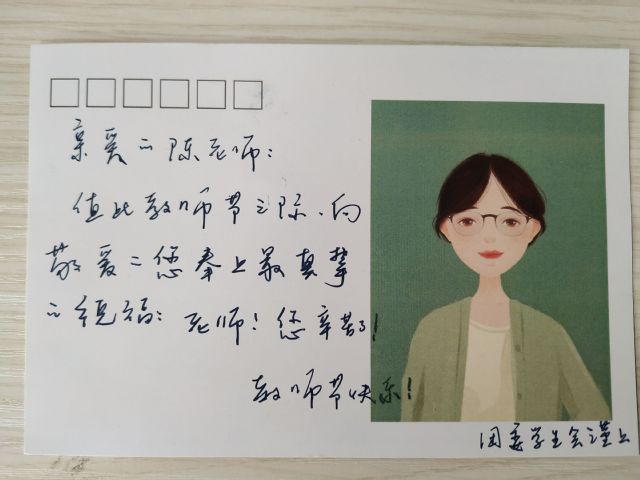 亲爱的陈老师:
值此教师节之际、向
敬爱的您奉上最真挚
的祝福: 老师! 您辛苦了!
教师节快乐!
团委学生会谨上